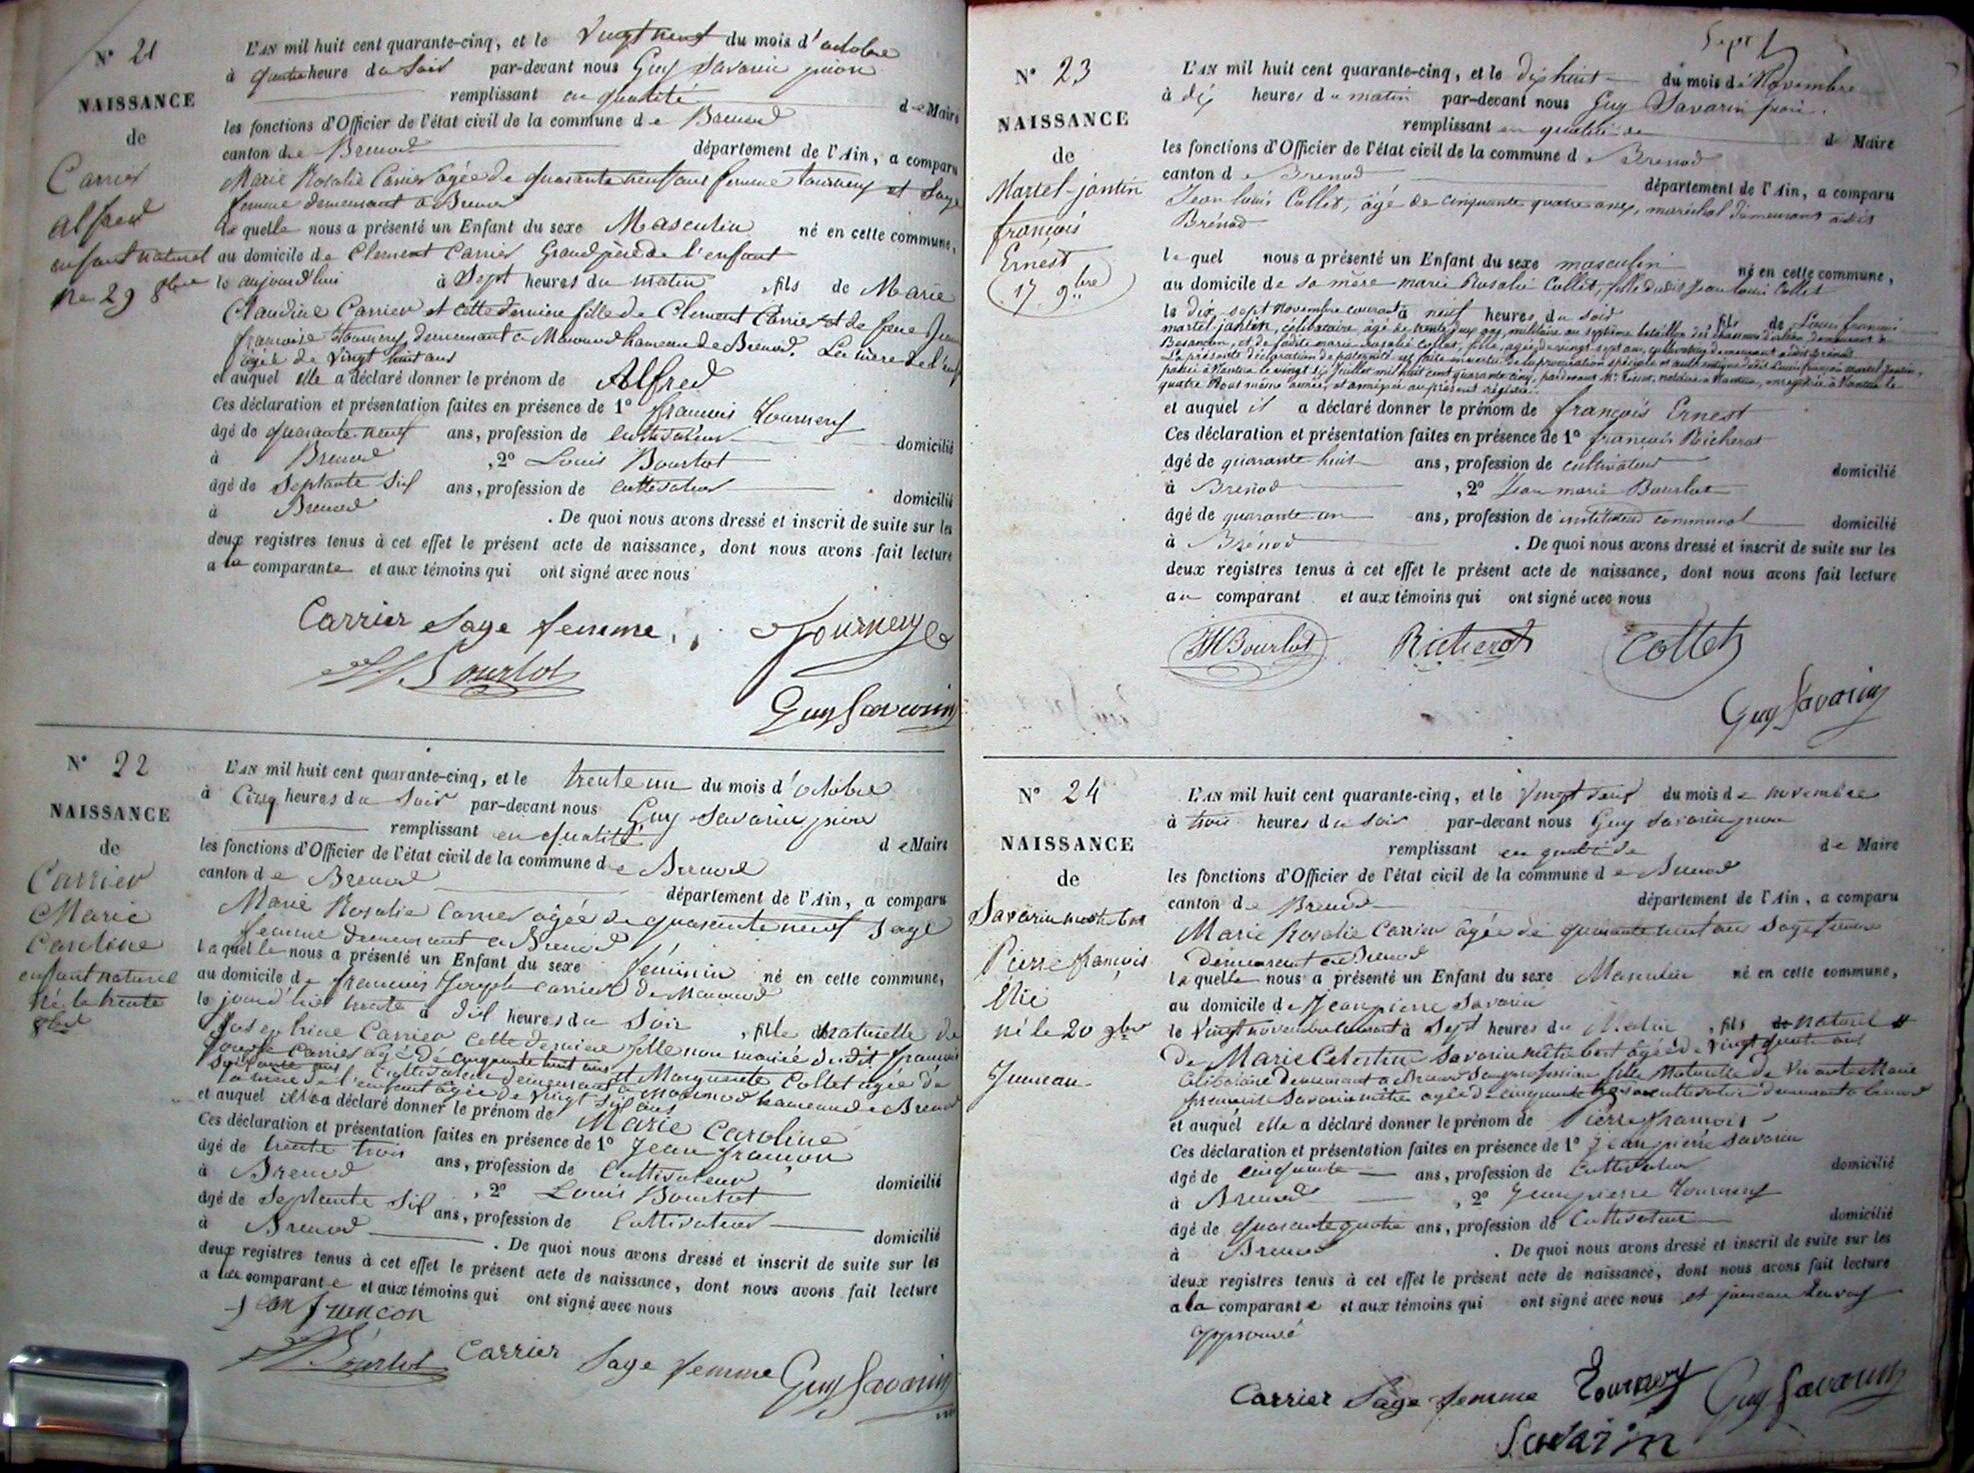 N° 21
NAISSANCE
de
Carrier
Alfred
enfant naturel
né 29 8bre
L'AN mil huit cent quarante-cinq, et le vingt neuf du mois d'octobre
à quatre heure du soir par-devant nous Guy Savarin
remplissant en qualité de Maire
les fonctions d'Officier de l'état civil de la commune de Brenod
canton de Brenod département de l'Ain, a comparu
Marie Rosalie Carrier agée de quarante neuf ans femme Tournery et Sage
femme demeurant a Brenod
la quelle nous a présenté un Enfant du sexe Masculin né en cette commune,
au domicile de Clement Carrier Grand père de l'enfant
le aujourd'hui à Sept heures du matin, fils de Marie
Claudine Carrier et cette derniere fille de Clement Carrier et de feue
francoise Tournery demeurant a hameau de Brenod. La mère de l'enf
agée de vingt huit ans
et auquel elle a déclaré donner le prénom de Alfred
Ces déclaration et présentation faites en présence de 1° francois Tournery
âgé de quarante neuf ans, profession de cultivateur domicilié
à Brenod, 2° Louis Bourlot
âgé de Septante Six ans, profession de cultivateur domicilié
à Brenod. De quoi nous avons dressé et inscrit de suite sur les
deux registres tenus à cet effet le présent acte de naissance, dont nous avons fait lecture
a la comparante et aux témoins qui ont signé avec nous
Carrier Sage femme Tournery
Bourlot
Guy Savarin
N° 22
NAISSANCE
de
Carrier
Marie
Caroline
enfant naturel
né le trente
8bre
L'AN mil huit cent quarante-cinq, et le trente un du mois d'octobre
à Cinq heures du Soir par-devant nous Guy Savarin
remplissant en qualité de Maire
les fonctions d'Officier de l'état civil de la commune de Brenod
canton de Brenod département de l'Ain, a comparu
Marie Rosalie Carrier agée de quarante neuf Sage
femme demeurant a Brenod
laquelle nous a présenté un Enfant du sexe féminin né en cette commune,
au domicile de francois Joseph Carrier de
le trente à dix heures du Soir, fille naturelle de
Josephine Carrier cette derniere fille non mariée dudit francois
Joseph Carrier agé de cinquante huit ans et Marguerite Collet agée de
Soixante ans cultivateurs demeurant a hameau de Brenod
La mère de l'enfant agée de vingt six ans
et auquel elle a déclaré donner le prénom de Marie Caroline
Ces déclaration et présentation faites en présence de 1° Jean francon
âgé de trente trois ans, profession de Cultivateur
à Brenod, 2° Louis Bourlot domicilié
âgé de Septante Six ans, profession de Cultivateur
à Brenod domicilié
. De quoi nous avons dressé et inscrit de suite sur les
deux registres tenus à cet effet le présent acte de naissance, dont nous avons fait lecture
a la comparante et aux témoins qui ont signé avec nous
Jean françon
Bourlot Carrier Sage femme Guy Savarin
Sept
N° 23
NAISSANCE
de
Martel-jantin
françois
Ernest
17 9bre
L'AN mil huit cent quarante-cinq, et le dix huit du mois de Novembre
à dix heures du matin par-devant nous Guy Savarin
remplissant en qualité de de Maire
les fonctions d'Officier de l'état civil de la commune de Brénod
canton de Brenod département de l'Ain, a comparu
Jean Louis Collet, âgé de cinquante quatre ans, maréchal demeurant audit
Brénod
lequel nous a présenté un Enfant du sexe masculin né en cette commune,
au domicile de sa mère marie Rosalie Collet, fille dudit Jean Louis Collet
le dix sept novembre courant à neuf heures du soir, fils de Louis françois
martel-jantin, célibataire, âgé de trente deux ans, militaire au septième bataillon des chasseurs d'orléan demeurant à
Besançon, et de ladite marie Rosalie Collet, fille, agée de vingt sept ans, cultivatrice demeurant audit Brénod
La présente déclaration de paternité est faite en vertu de la procuration spéciale et authentique dudit Louis françois martel-jantin,
passée à Nantua le vingt six Juillet mil huit cent quarante cinq, pardevant Mr. notaire à Nantua, enregistrée à Nantua le
quatre Aout même année, et annexée au présent registre.
et auquel il a déclaré donner le prénom de françois Ernest
Ces déclaration et présentation faites en présence de 1° françois Richerot
âgé de quarante huit ans, profession de cultivateur domicilié
à Brénod, 2° Jean marie Bourlot
âgé de quarante un ans, profession de instituteur communal domicilié
à Brénod. De quoi nous avons dressé et inscrit de suite sur les
deux registres tenus à cet effet le présent acte de naissance, dont nous avons fait lecture
au comparant et aux témoins qui ont signé avec nous
JM Bourlot Richerot Collet
Guy Savarin
N° 24
NAISSANCE
de
Savarin
Pierre françois
Elie
né le 20 9bre
Jumeau
L'AN mil huit cent quarante-cinq, et le vingt deux du mois de novembre
à trois heures du soir par-devant nous Guy Savarin
remplissant en qualité de de Maire
les fonctions d'Officier de l'état civil de la commune de Brenod
canton de Brenod département de l'Ain, a comparu
Marie Rosalie Carrier agée de quarante neuf ans Sage femme
demeurant a Brenod
laquelle nous a présenté un Enfant du sexe Masculin né en cette commune,
au domicile de Jean pierre Savarin
le vingt novembre courant à Sept heures du Matin, fils naturel
de Marie Celestine Savarin agée de vingt quatre ans
célibataire demeurant a Brenod sans profession fille Naturelle de Marie
francoise Savarin agée de cinquante trois ans cultivatrice demeurant a Brenod
et auquel elle a déclaré donner le prénom de Pierre francois
Ces déclaration et présentation faites en présence de 1° Jean pierre Savarin
âgé de cinquante ans, profession de cultivateur domicilié
à Brenod, 2° Jean pierre Tournery
âgé de quarante quatre ans, profession de Cultivateur domicilié
à Brenod. De quoi nous avons dressé et inscrit de suite sur les
deux registres tenus à cet effet le présent acte de naissance, dont nous avons fait lecture
a la comparante et aux témoins qui ont signé avec nous et jumeau
approuvé
Carrier Sage femme Tournery Guy Savarin
Savarin